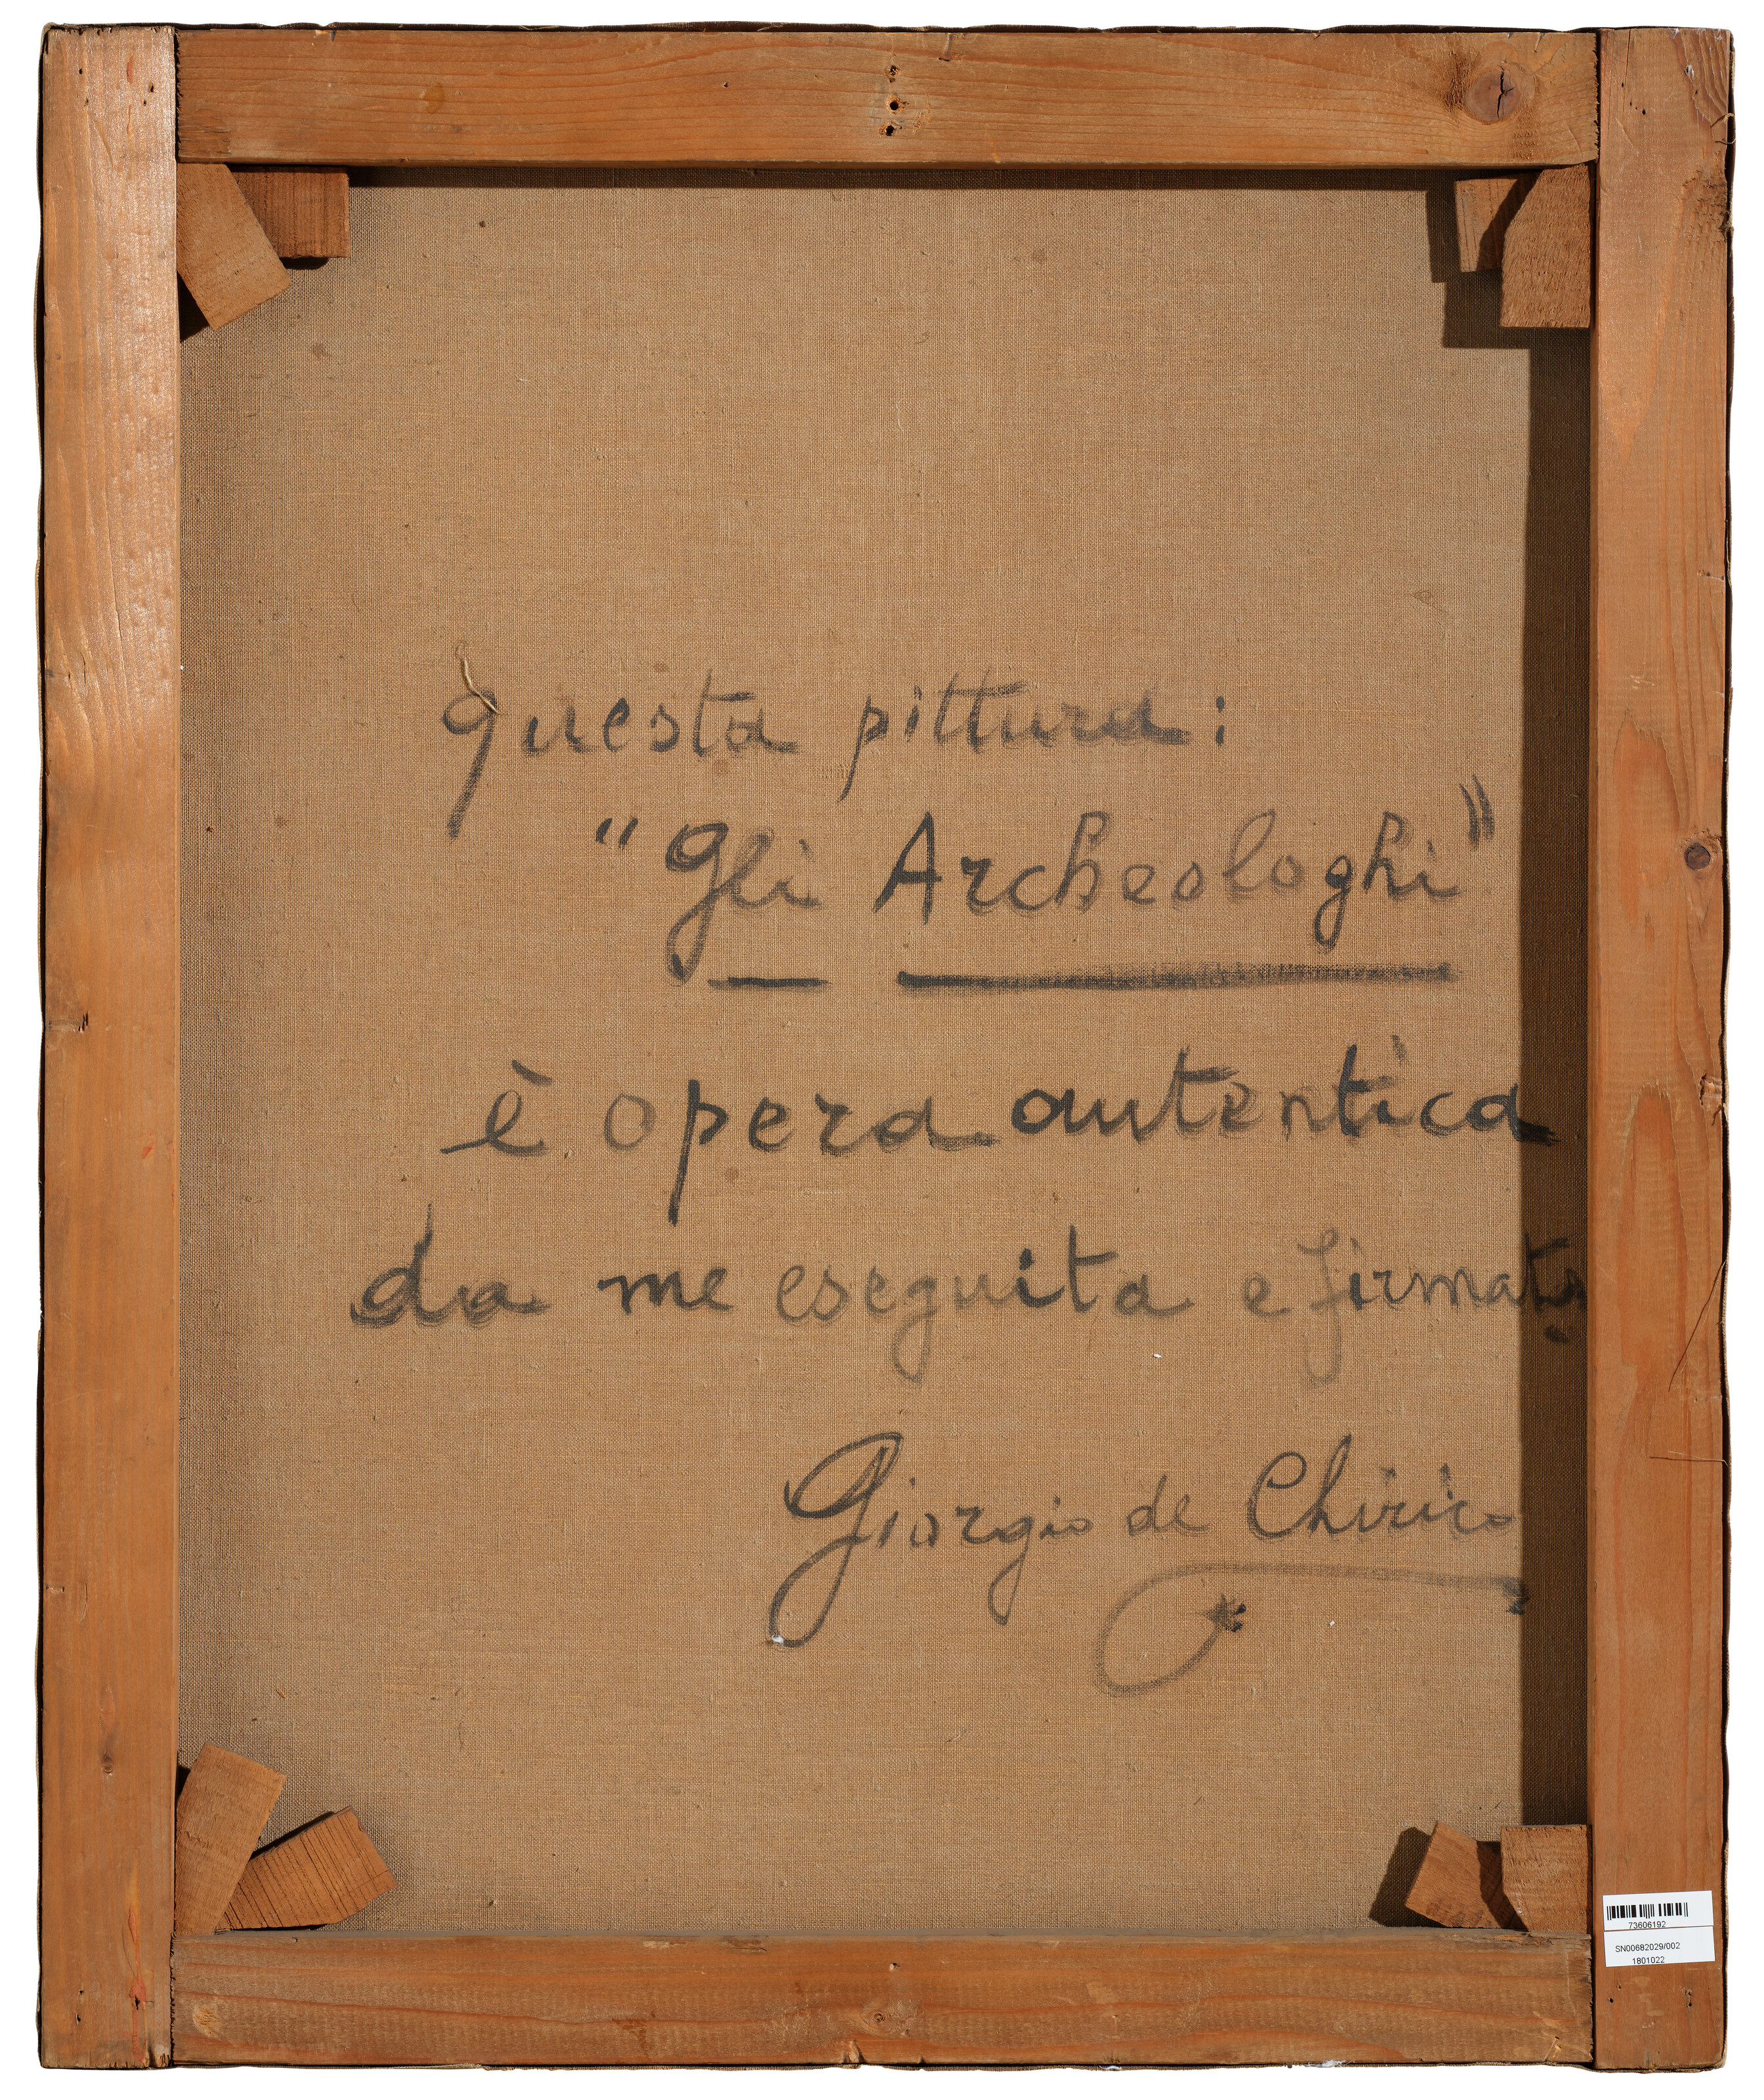 questa pittura:
"Gli Archeologhi"
è opera autentica
da me eseguita e firmata.
Giorgio de Chirico
73606192
SN00682029/002
1801022